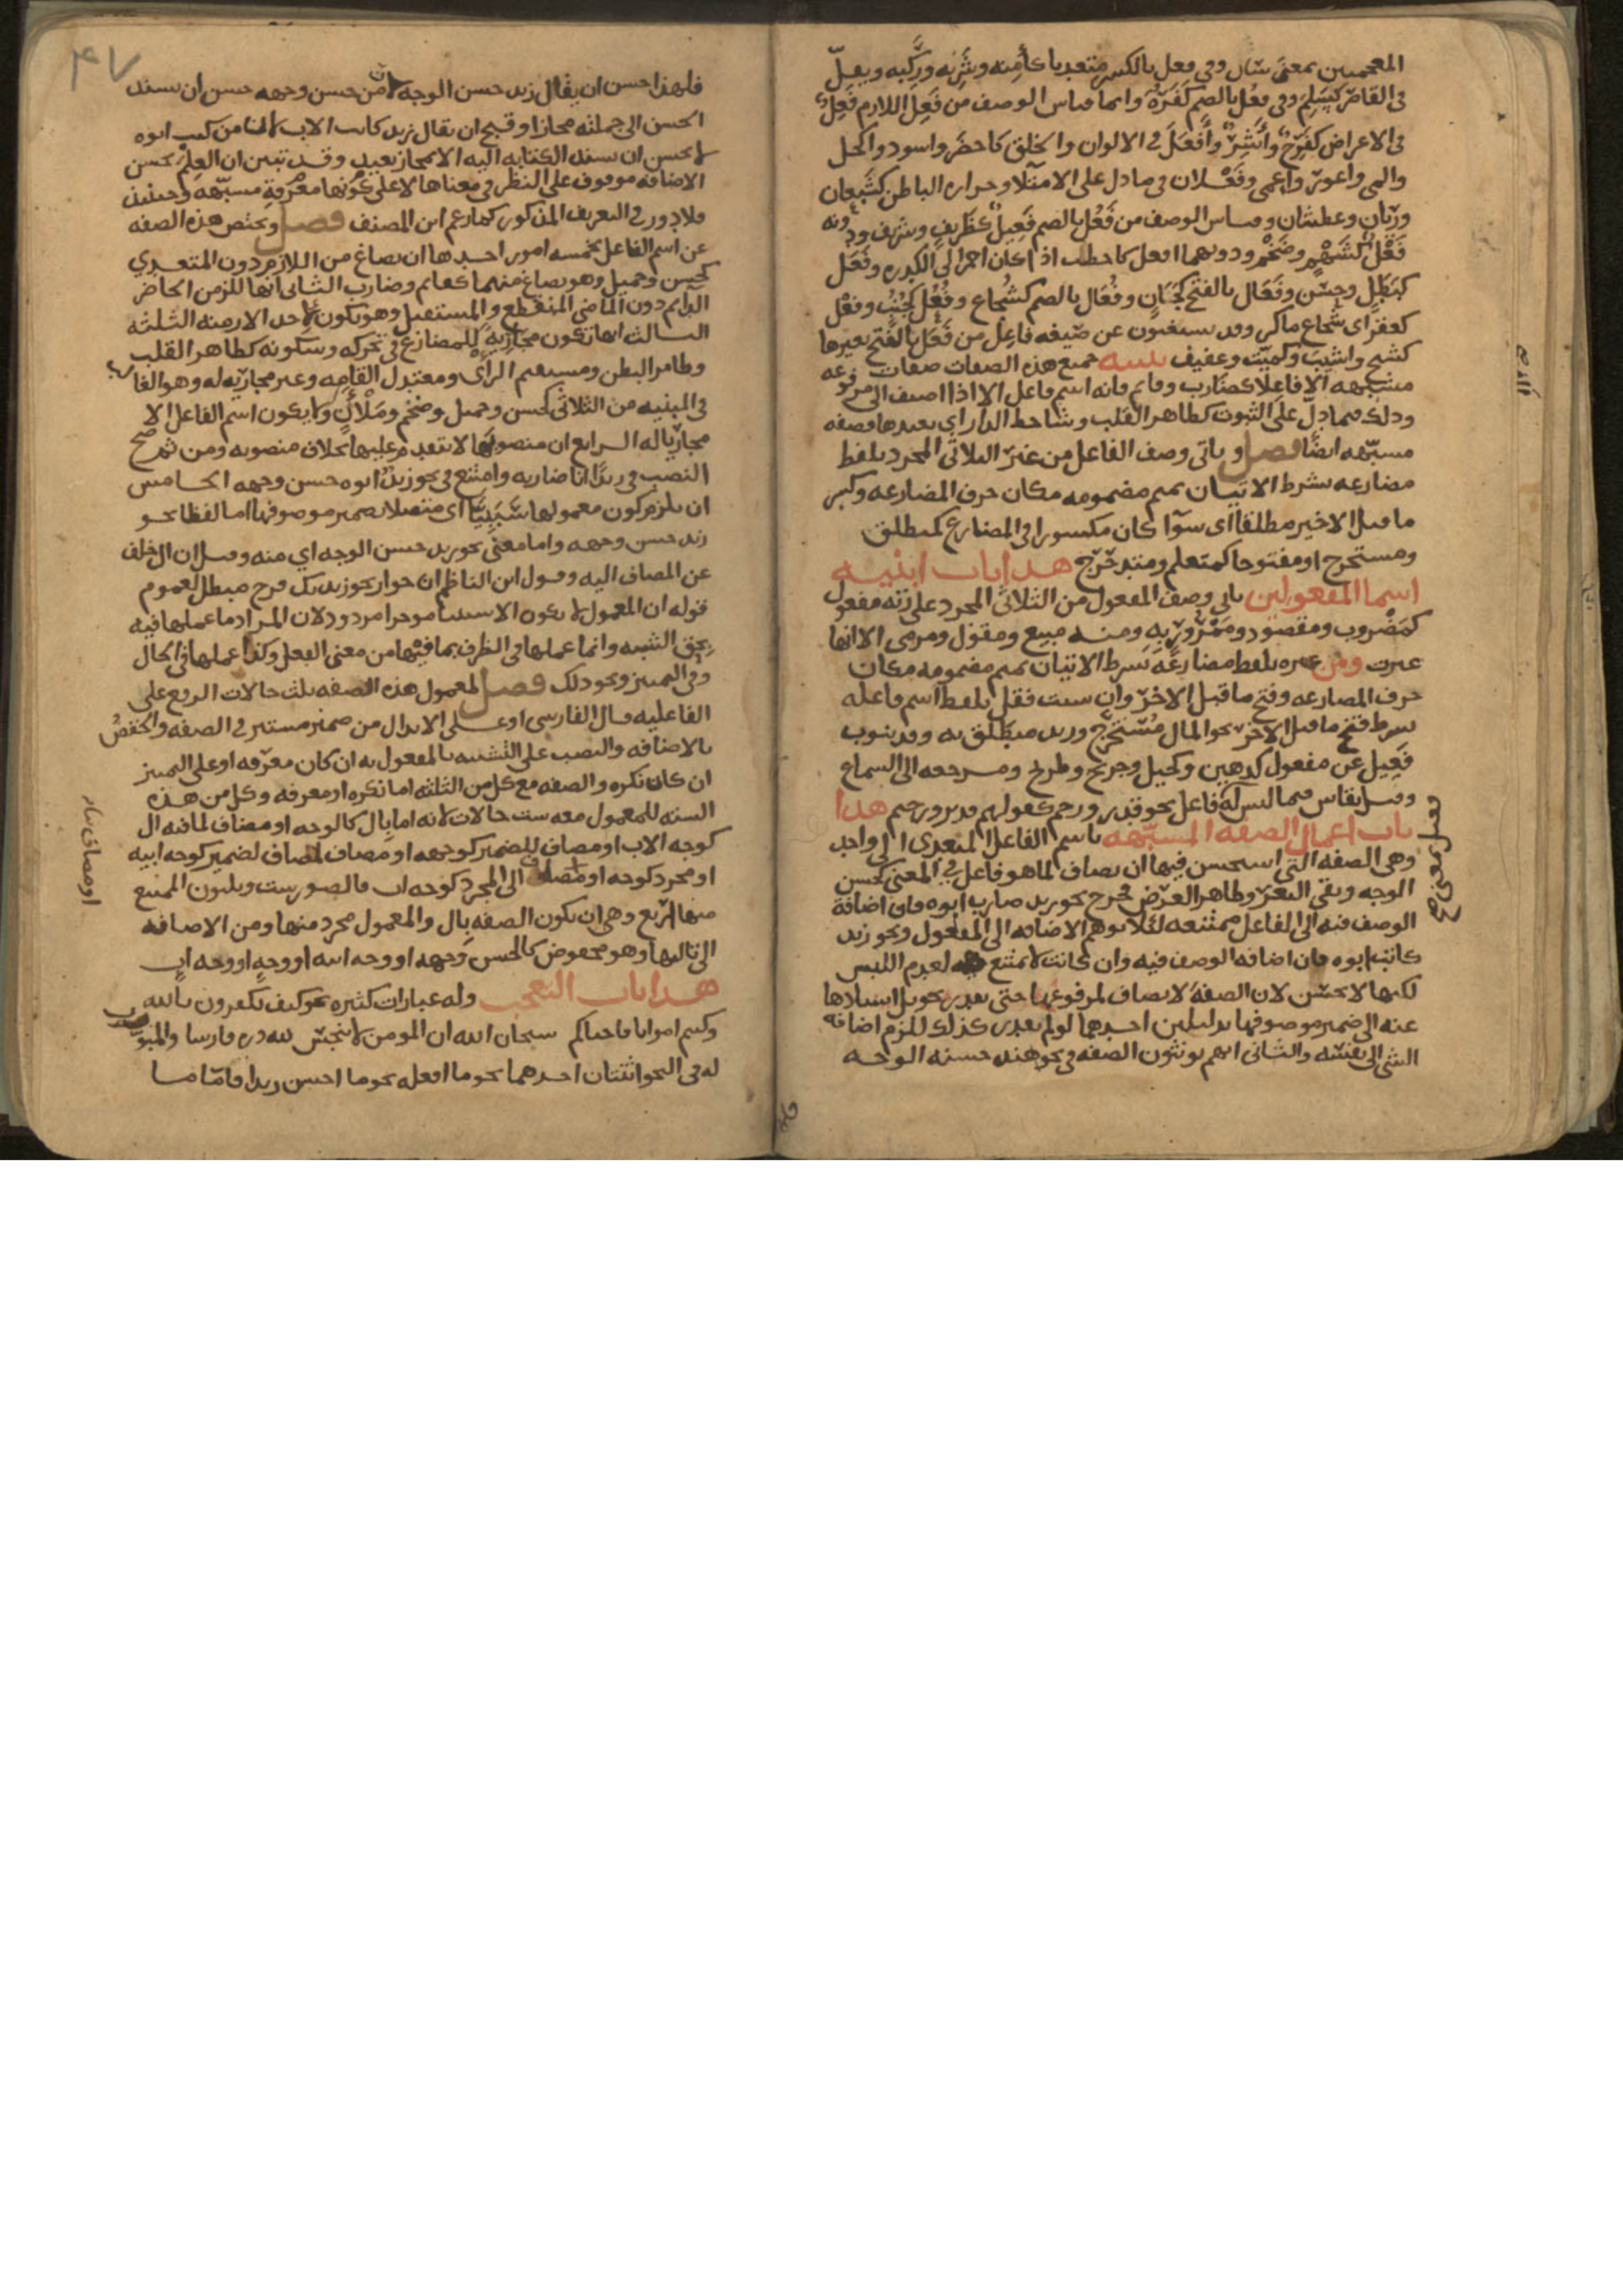 المعجمتين بمعنى سال وفي فعل بالكسر متعديا كأمنه وشربه وركبه ويقل
في القاصر كسلم وفي فعل بالضم كفره وانما قياس الوصف من فعل اللازم فعل
في الاعراض كفرح وأشر وأفعل في الالوان والخلق كاخضر واسود واكحل
والمى واعور واعمى وفعلان فيما دل على الامتلا وحراره الباطن كشبعان
وريان وعطشان وقياس الوصف من فعل بالضم فعيل كظريف وشريف ودونه
فعل كشهم وضخم ودونهما افعل كاخطب اذا كان احمر الى الكدره وفعل
كبطل وحسن وفعال بالفتح كجبان وفعال بالضم كشجاع وفعل كجنب وفعل
كعفر اى شجاع ماكر وقد يستغنون عن صيغه فاعل من فعل بالفتح بغيرها
كشيخ واشيب وكميت وعفيف تنبيه جميع هذه الصفات صفات
مشبهه الا فاعلا كضارب وقائم فانه اسم فاعل الا اذا اضيف الى مرفوعه
وذلك فيما دل على الثبوت كطاهر القلب وشاحط الدار اي بعيدها فصفه
مشبهه ايضا فصل وياتي وصف الفاعل من غير الثلاثي المجرد بلفظ
مضارعه بشرط الاتيان بميم مضمومه مكان حرف المضارعه وكسر
ما قبل الاخير مطلقا اى سوا كان مكسورا في المضارع كمنطلق
ومستخرج او مفتوحا كمتعلم ومتدحرج هذا باب ابنيه
اسما المفعولين ياتي وصف المفعول من الثلاثي المجرد على زنه مفعول
كمضروب ومقصود وممرور به ومنه مبيع ومقول ومرمى الا انها
غيرت ومن غيره بلفظ مضارعه بشرط الاتيان بميم مضمومه مكان
حرف المضارعه وفتح ما قبل الاخر وان شئت فقل بلفظ اسم فاعله
بشرط فتح ما قبل الاخر نحو المال مستخرج وزيد منطلق به وقد ينوب
فعيل عن مفعول كدهين وكحيل وجريح وطريح ومرجعه الى السماع
وقيل يقاس فيما ليس له فاعل نحو قدر ورحم كقولهم قدير ورحيم هذا
باب اعمال الصفه المشبهه باسم الفاعل المتعدي الى واحد
وهي الصفه التي استحسن فيها ان يضاف لما هو فاعل في المعنى كحسن
الوجه ونقي الثغر وطاهر العرض فخرج نحو زيد ضارب ابوه فان اضافة
الوصف فيه الى الفاعل ممتنعه لئلا يوهم الاضافه الى المفعول ونحو زيد
كاتب ابوه فان اضافه الوصف فيه وان كانت لا تمتنع لعدم اللبس
لكنها لا تحسن لان الصفه لا تضاف لمرفوعها حتى يقدر تحويل اسنادها
عنه الى ضمير موصوفها بدليلين احدهما لو لم يقدر كذلك للزم اضافه
الشي الى نفسه والثاني انهم يونثون الصفه في نحو هند حسنه الوجه
٤٧
فلهذا حسن ان يقال زيد حسن الوجه لان من حسن وجهه حسن ان يسند
الحسن الى جملته مجازا وقبح ان يقال زيد كاتب الاب لان من كتب ابوه
لا يحسن ان يسند الكتابه اليه الا بمجاز بعيد وقد تبين ان العلم بحسن
الاضافه موقوف على النظر في معناها لا على معرفة كونها مشبهه وحينئذ
فلا دور في التعريف المذكور كما زعم ابن المصنف فصل وتختص هذه الصفه
عن اسم الفاعل بخمسه امور احدها ان تصاغ من اللازم دون المتعدي
كحسن وجميل وهو يصاغ منهما كقائم وضارب الثانى انها للزمن الحاضر
الدائم دون الماضى المنقطع والمستقبل وهو يكون لاحد الازمنه الثلثه
الثالث انها تكون مجارية للمضارع في تحركه وسكونه كطاهر القلب
وضامر البطن ومستقيم الرأى ومعتدل القامه وغير مجاريه له وهو الغالب
في المبنيه من الثلاثى كحسن وجميل وضخم وملآن ولا يكون اسم الفاعل الا
مجاريا له الرابع ان منصوبها لا يتقدم عليها بخلاف منصوبه ومن ثم صح
النصب في زيدا انا ضاربه وامتنع في نحو زيد ابوه حسن وجهه الخامس
ان يلزم كون معمولها سببيا اى متصلا بضمير موصوفها اما لفظا نحو
زيد حسن وجهه واما معنى نحو زيد حسن الوجه اي منه وقيل ان ال خلف
عن المضاف اليه وقول ابن الناظم ان جواز نحو زيد بك فرح مبطل لعموم
قوله ان المعمول لا يكون الا سببيا موخرا مردود لان المراد ما عملها فيه
بحق الشبه وانما عملها في الظرف بما فيها من معنى الفعل وكذا عملها في الحال
وفي التمييز ونحو ذلك فصل لمعمول هذه الصفه ثلث حالات الرفع على
الفاعليه قال الفارسي او على الابدال من ضمير مستتر في الصفه والخفض
بالاضافه والنصب على التشبيه بالمفعول به ان كان معرفه او على التمييز
ان كان نكره والصفه مع كل من الثلثه اما نكره او معرفه وكل من هذه
السته للمعمول معه ست حالات لانه اما بال كالوجه او مضاف لما فيه ال
كوجه الاب او مضاف للضمير كوجهه او مضاف لمضاف لضمير كوجه ابيه
او مجرد كوجه او مضاف الى المجرد كوجه اب فالصور ست وثلثون الممتنع
منها اربع وهي ان تكون الصفه بال والمعمول مجرد منها ومن الاضافه
الى تاليها وهو مخفوض كالحسن وجهه او وجه ابيه او وجه او وجه اب
هذا باب التعجب وله عبارات كثيره نحو كيف تكفرون بالله
وكنتم امواتا فاحياكم سبحان الله ان المومن لا ينجس لله دره فارسا والمبوب
له في النحو اثنتان احدهما نحو ما افعله نحو ما احسن زيدا فاما ما